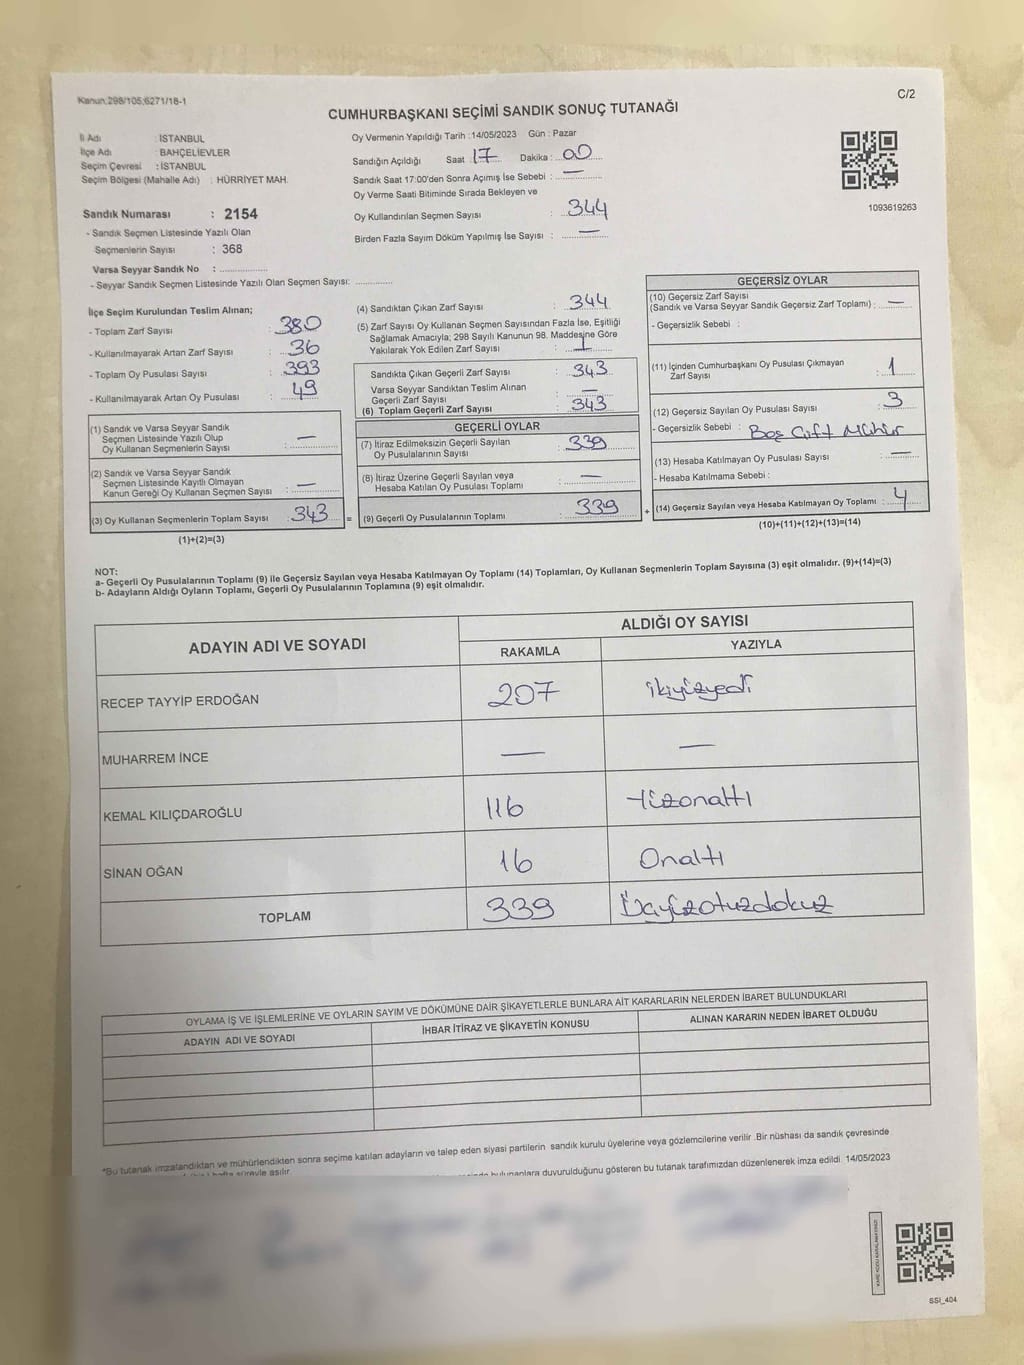 Kanun:298/105;6271/18-1
C/2
CUMHURBAŞKANI SEÇİMİ SANDIK SONUÇ TUTANAĞI
İl Adı : İSTANBUL
İlçe Adı : BAHÇELİEVLER
Seçim Çevresi : İSTANBUL
Seçim Bölgesi (Mahalle Adı) : HÜRRİYET MAH.
Sandık Numarası : 2154
- Sandık Seçmen Listesinde Yazılı Olan
Seçmenlerin Sayısı : 368
Varsa Seyyar Sandık No :
- Seyyar Sandık Seçmen Listesinde Yazılı Olan Seçmen Sayısı:
Oy Vermenin Yapıldığı Tarih :14/05/2023 Gün : Pazar
Sandığın Açıldığı Saat 17 Dakika : 00
Sandık Saat 17:00'den Sonra Açımış İse Sebebi : —
Oy Verme Saati Bitiminde Sırada Bekleyen ve
Oy Kullandırılan Seçmen Sayısı : 344
Birden Fazla Sayım Döküm Yapılmış İse Sayısı : —
1093619263
İlçe Seçim Kurulundan Teslim Alınan;
- Toplam Zarf Sayısı : 380
- Kullanılmayarak Artan Zarf Sayısı : 36
- Toplam Oy Pusulası Sayısı : 393
- Kullanılmayarak Artan Oy Pusulası : 49
(1) Sandık ve Varsa Seyyar Sandık
Seçmen Listesinde Yazılı Olup
Oy Kullanan Seçmenlerin Sayısı : —
(2) Sandık ve Varsa Seyyar Sandık
Seçmen Listesinde Kayıtlı Olmayan
Kanun Gereği Oy Kullanan Seçmen Sayısı : —
(3) Oy Kullanan Seçmenlerin Toplam Sayısı : 343
(1)+(2)=(3)
(4) Sandıktan Çıkan Zarf Sayısı : 344
(5) Zarf Sayısı Oy Kullanan Seçmen Sayısından Fazla İse, Eşitliği
Sağlamak Amacıyla; 298 Sayılı Kanunun 98. Maddesine Göre
Yakılarak Yok Edilen Zarf Sayısı : 1
Sandıkta Çıkan Geçerli Zarf Sayısı : 343
Varsa Seyyar Sandıktan Teslim Alınan
Geçerli Zarf Sayısı : —
(6) Toplam Geçerli Zarf Sayısı : 343
GEÇERLİ OYLAR
(7) İtiraz Edilmeksizin Geçerli Sayılan
Oy Pusulalarının Sayısı : 339
(8) İtiraz Üzerine Geçerli Sayılan veya
Hesaba Katılan Oy Pusulası Toplamı : —
= (9) Geçerli Oy Pusulalarının Toplamı : 339
GEÇERSİZ OYLAR
(10) Geçersiz Zarf Sayısı
(Sandık ve Varsa Seyyar Sandık Geçersiz Zarf Toplamı) : —
- Geçersizlik Sebebi :
(11) İçinden Cumhurbaşkanı Oy Pusulası Çıkmayan
Zarf Sayısı : 1
(12) Geçersiz Sayılan Oy Pusulası Sayısı : 3
- Geçersizlik Sebebi : Boş Çift Mühür
(13) Hesaba Katılmayan Oy Pusulası Sayısı : —
- Hesaba Katılmama Sebebi :
+ (14) Geçersiz Sayılan veya Hesaba Katılmayan Oy Toplamı : 4
(10)+(11)+(12)+(13)=(14)
NOT:
a- Geçerli Oy Pusulalarının Toplamı (9) ile Geçersiz Sayılan veya Hesaba Katılmayan Oy Toplamı (14) Toplamları, Oy Kullanan Seçmenlerin Toplam Sayısına (3) eşit olmalıdır. (9)+(14)=(3)
b- Adayların Aldığı Oyların Toplamı, Geçerli Oy Pusulalarının Toplamına (9) eşit olmalıdır.
ADAYIN ADI VE SOYADI
ALDIĞI OY SAYISI
RAKAMLA YAZIYLA
RECEP TAYYİP ERDOĞAN 207 ikiyüzyedi
MUHARREM İNCE — —
KEMAL KILIÇDAROĞLU 116 Yüzonaltı
SİNAN OĞAN 16 Onaltı
TOPLAM 339 Üçyüzotuzdokuz
OYLAMA İŞ VE İŞLEMLERİNE VE OYLARIN SAYIM VE DÖKÜMÜNE DAİR ŞİKAYETLERLE BUNLARA AİT KARARLARIN NELERDEN İBARET BULUNDUKLARI
ADAYIN ADI VE SOYADI İHBAR İTİRAZ VE ŞİKAYETİN KONUSU ALINAN KARARIN NEDEN İBARET OLDUĞU
*Bu tutanak imzalandıktan ve mühürlendikten sonra seçime katılan adayların ve talep eden siyasi partilerin sandık kurulu üyelerine veya gözlemcilerine verilir .Bir nüshası da sandık çevresinde
hafta süreyle asılır. bulunanlara duyurulduğunu gösteren bu tutanak tarafımızdan düzenlenerek imza edildi. 14/05/2023
SSI_404